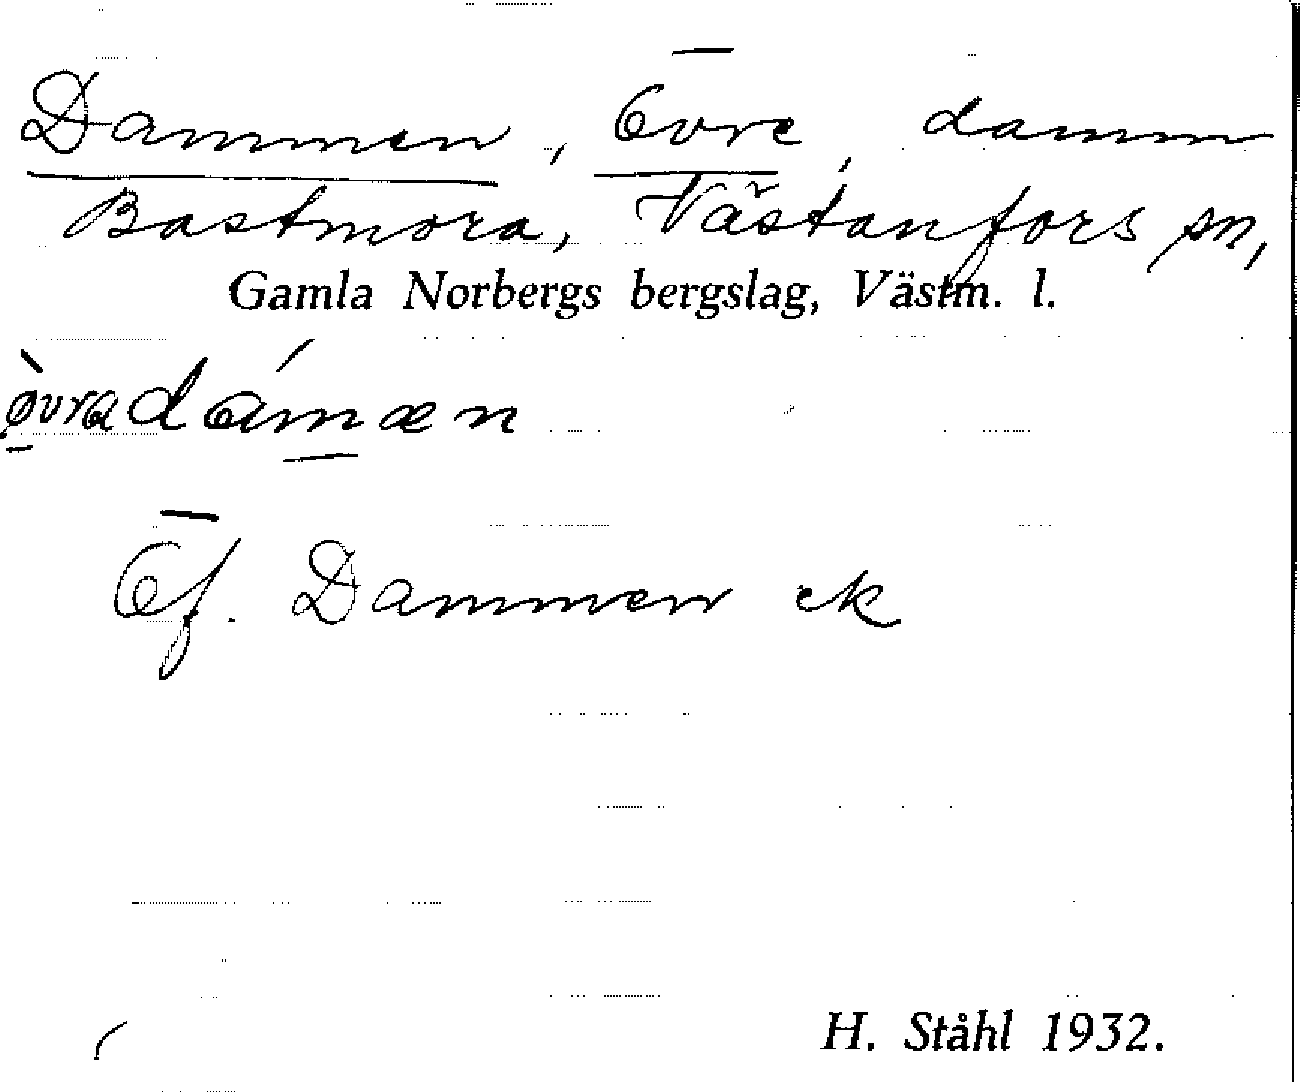 Dammen, Övre, damm
Bastmora, Västanfors sn,
Gamla Norbergs bergslag, Västm. l.
øvradámæn
Öf. Dammen ek
H. Ståhl 1932.